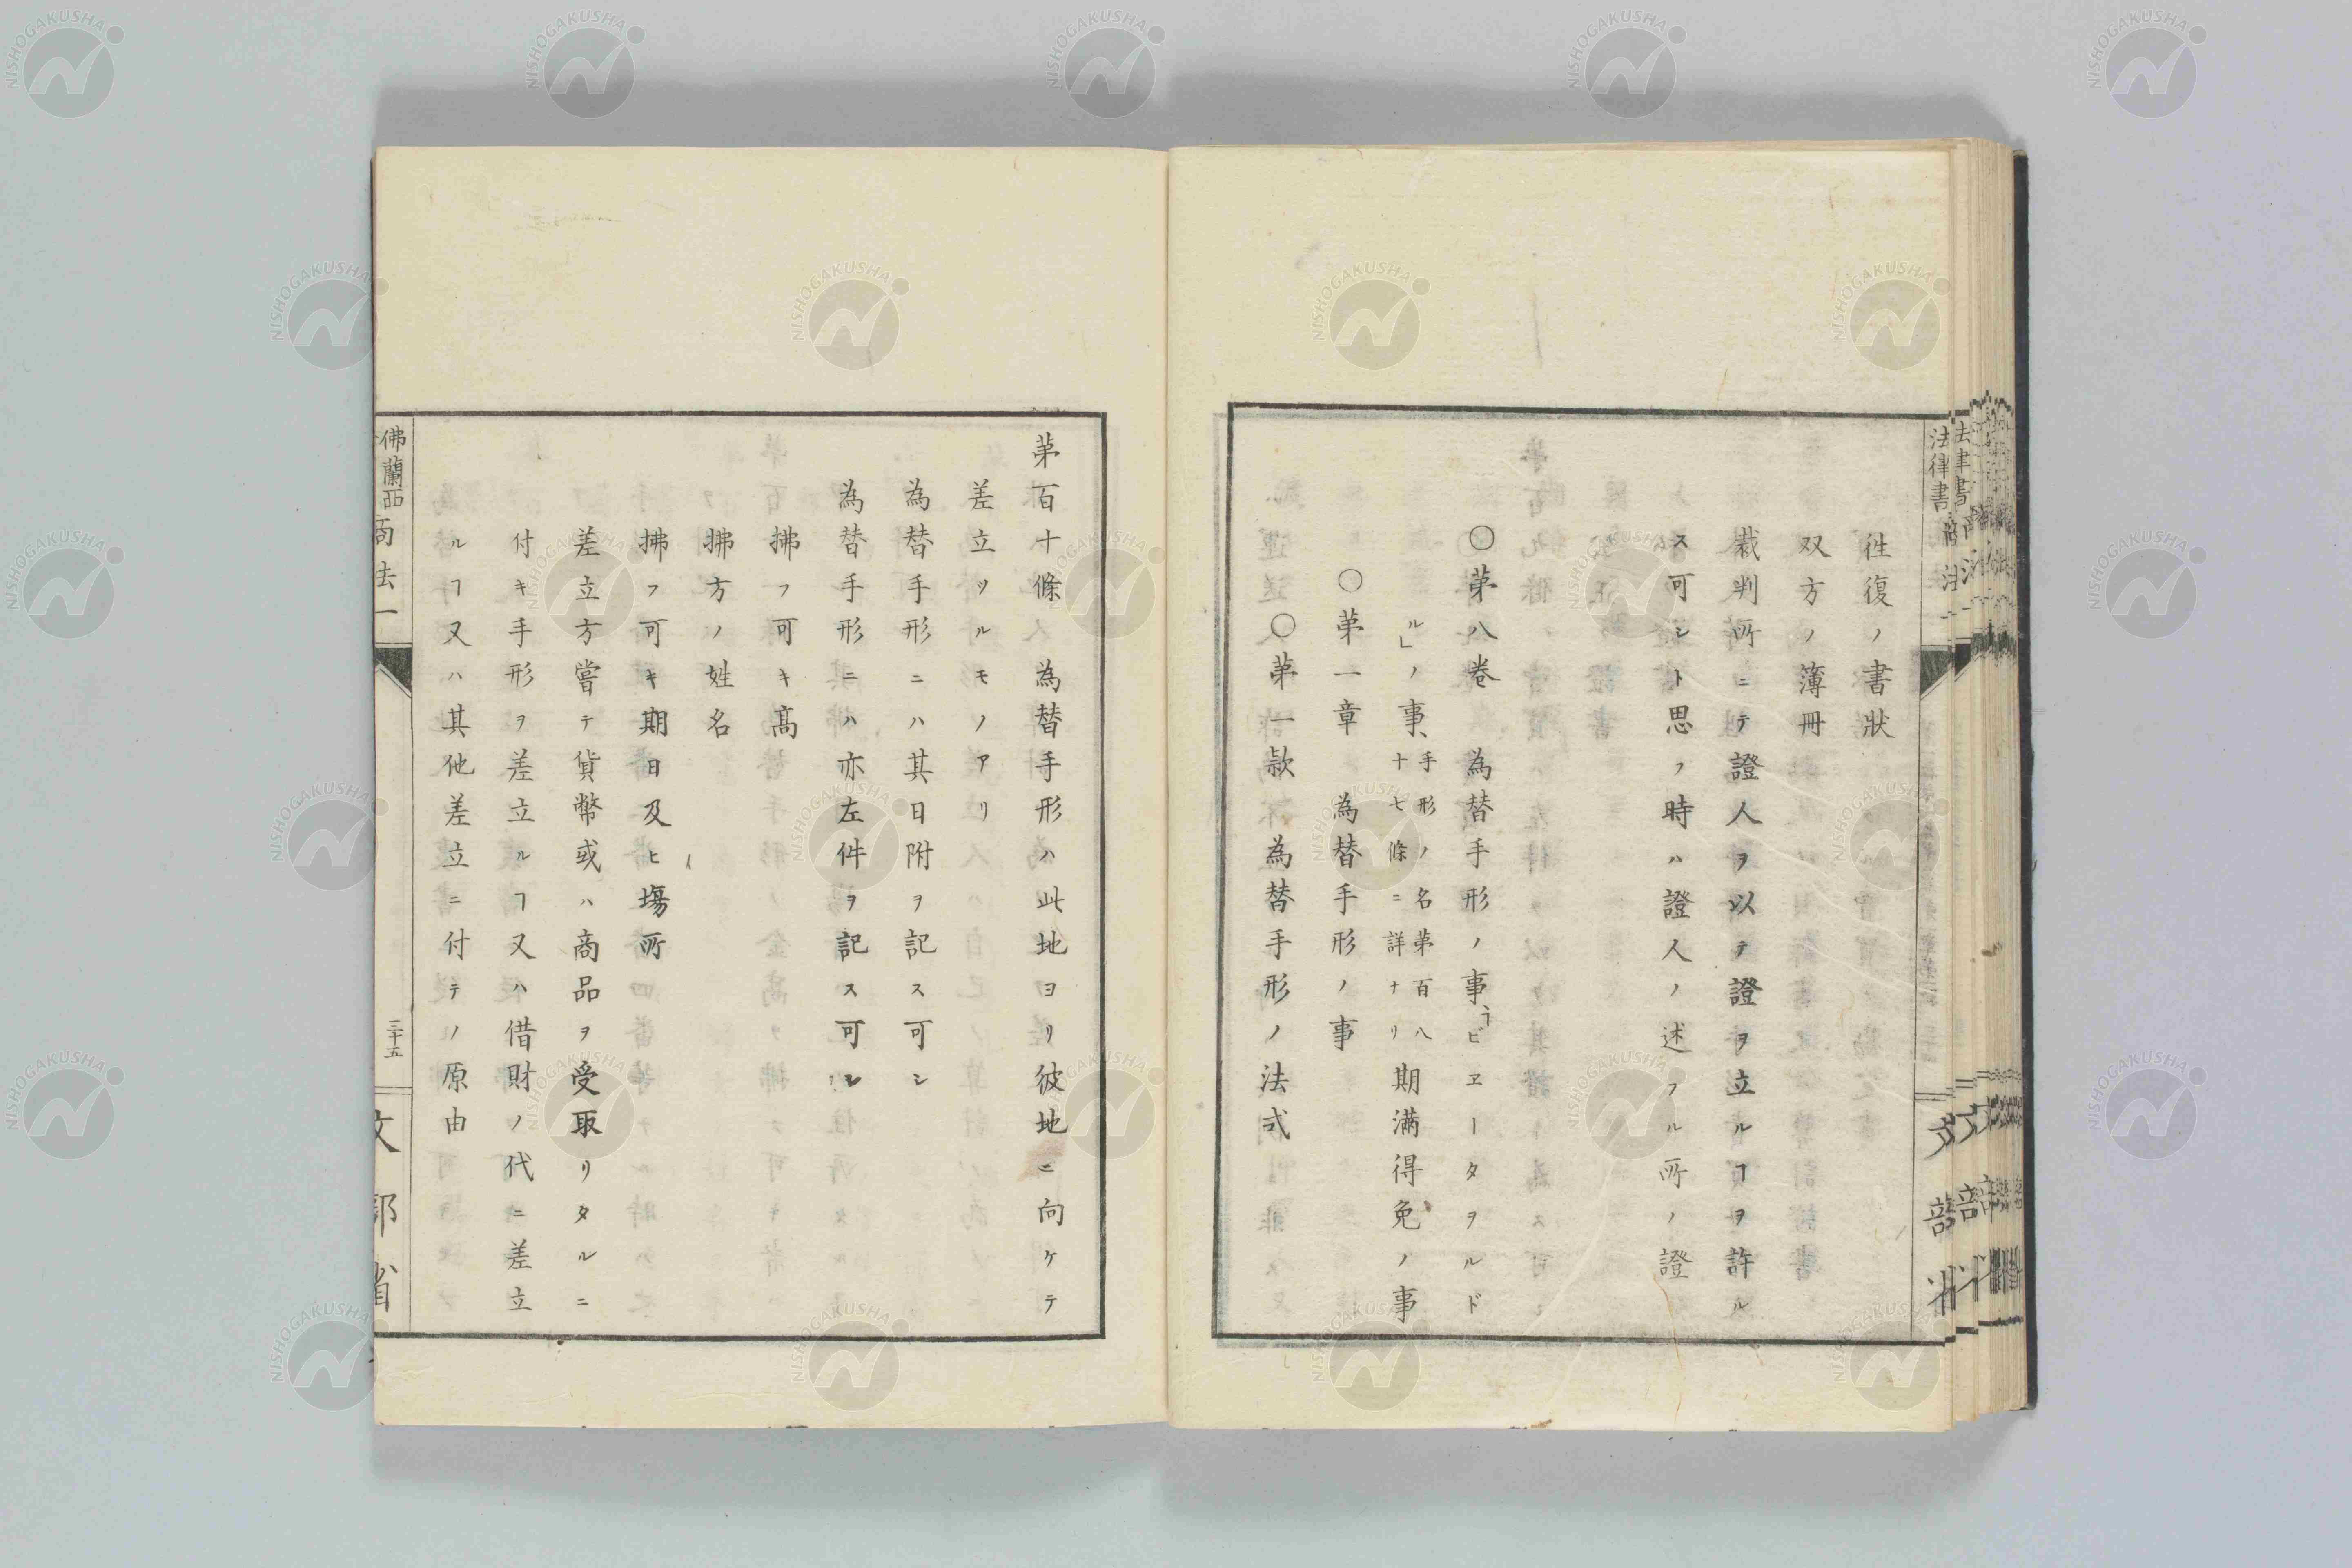 徃復ノ書狀
双方ノ簿冊
裁判所ニテ證人ヲ以テ證ヲ立ルヿヲ許ル
ス可シト思フ時ハ證人ノ述フル所ノ證
〇苐八巻 為替手形ノ事、「ビヱータヲルド
ル」ノ事、手形ノ名苐百八十七條ニ詳ナリ期満得免ノ事
〇苐一章 為替手形ノ事
〇苐一欵 為替手形ノ法式
苐百十條 為替手形ハ此地ヨリ彼地ニ向ケテ
差立ツルモノアリ
為替手形ニハ其日附ヲ記ス可シ
為替手形ニハ亦左件ヲ記ス可シ
拂フ可キ髙
拂方ノ姓名
拂フ可キ期日及ヒ塲所
差立方嘗テ貨幣或ハ商品ヲ受取リタルニ
付キ手形ヲ差立ルヿ又ハ借財ノ代ニ差立
ルヿ又ハ其他差立ニ付テノ原由
佛蘭西商法一
三十五
文部省
法律書
NISHOGAKUSHA